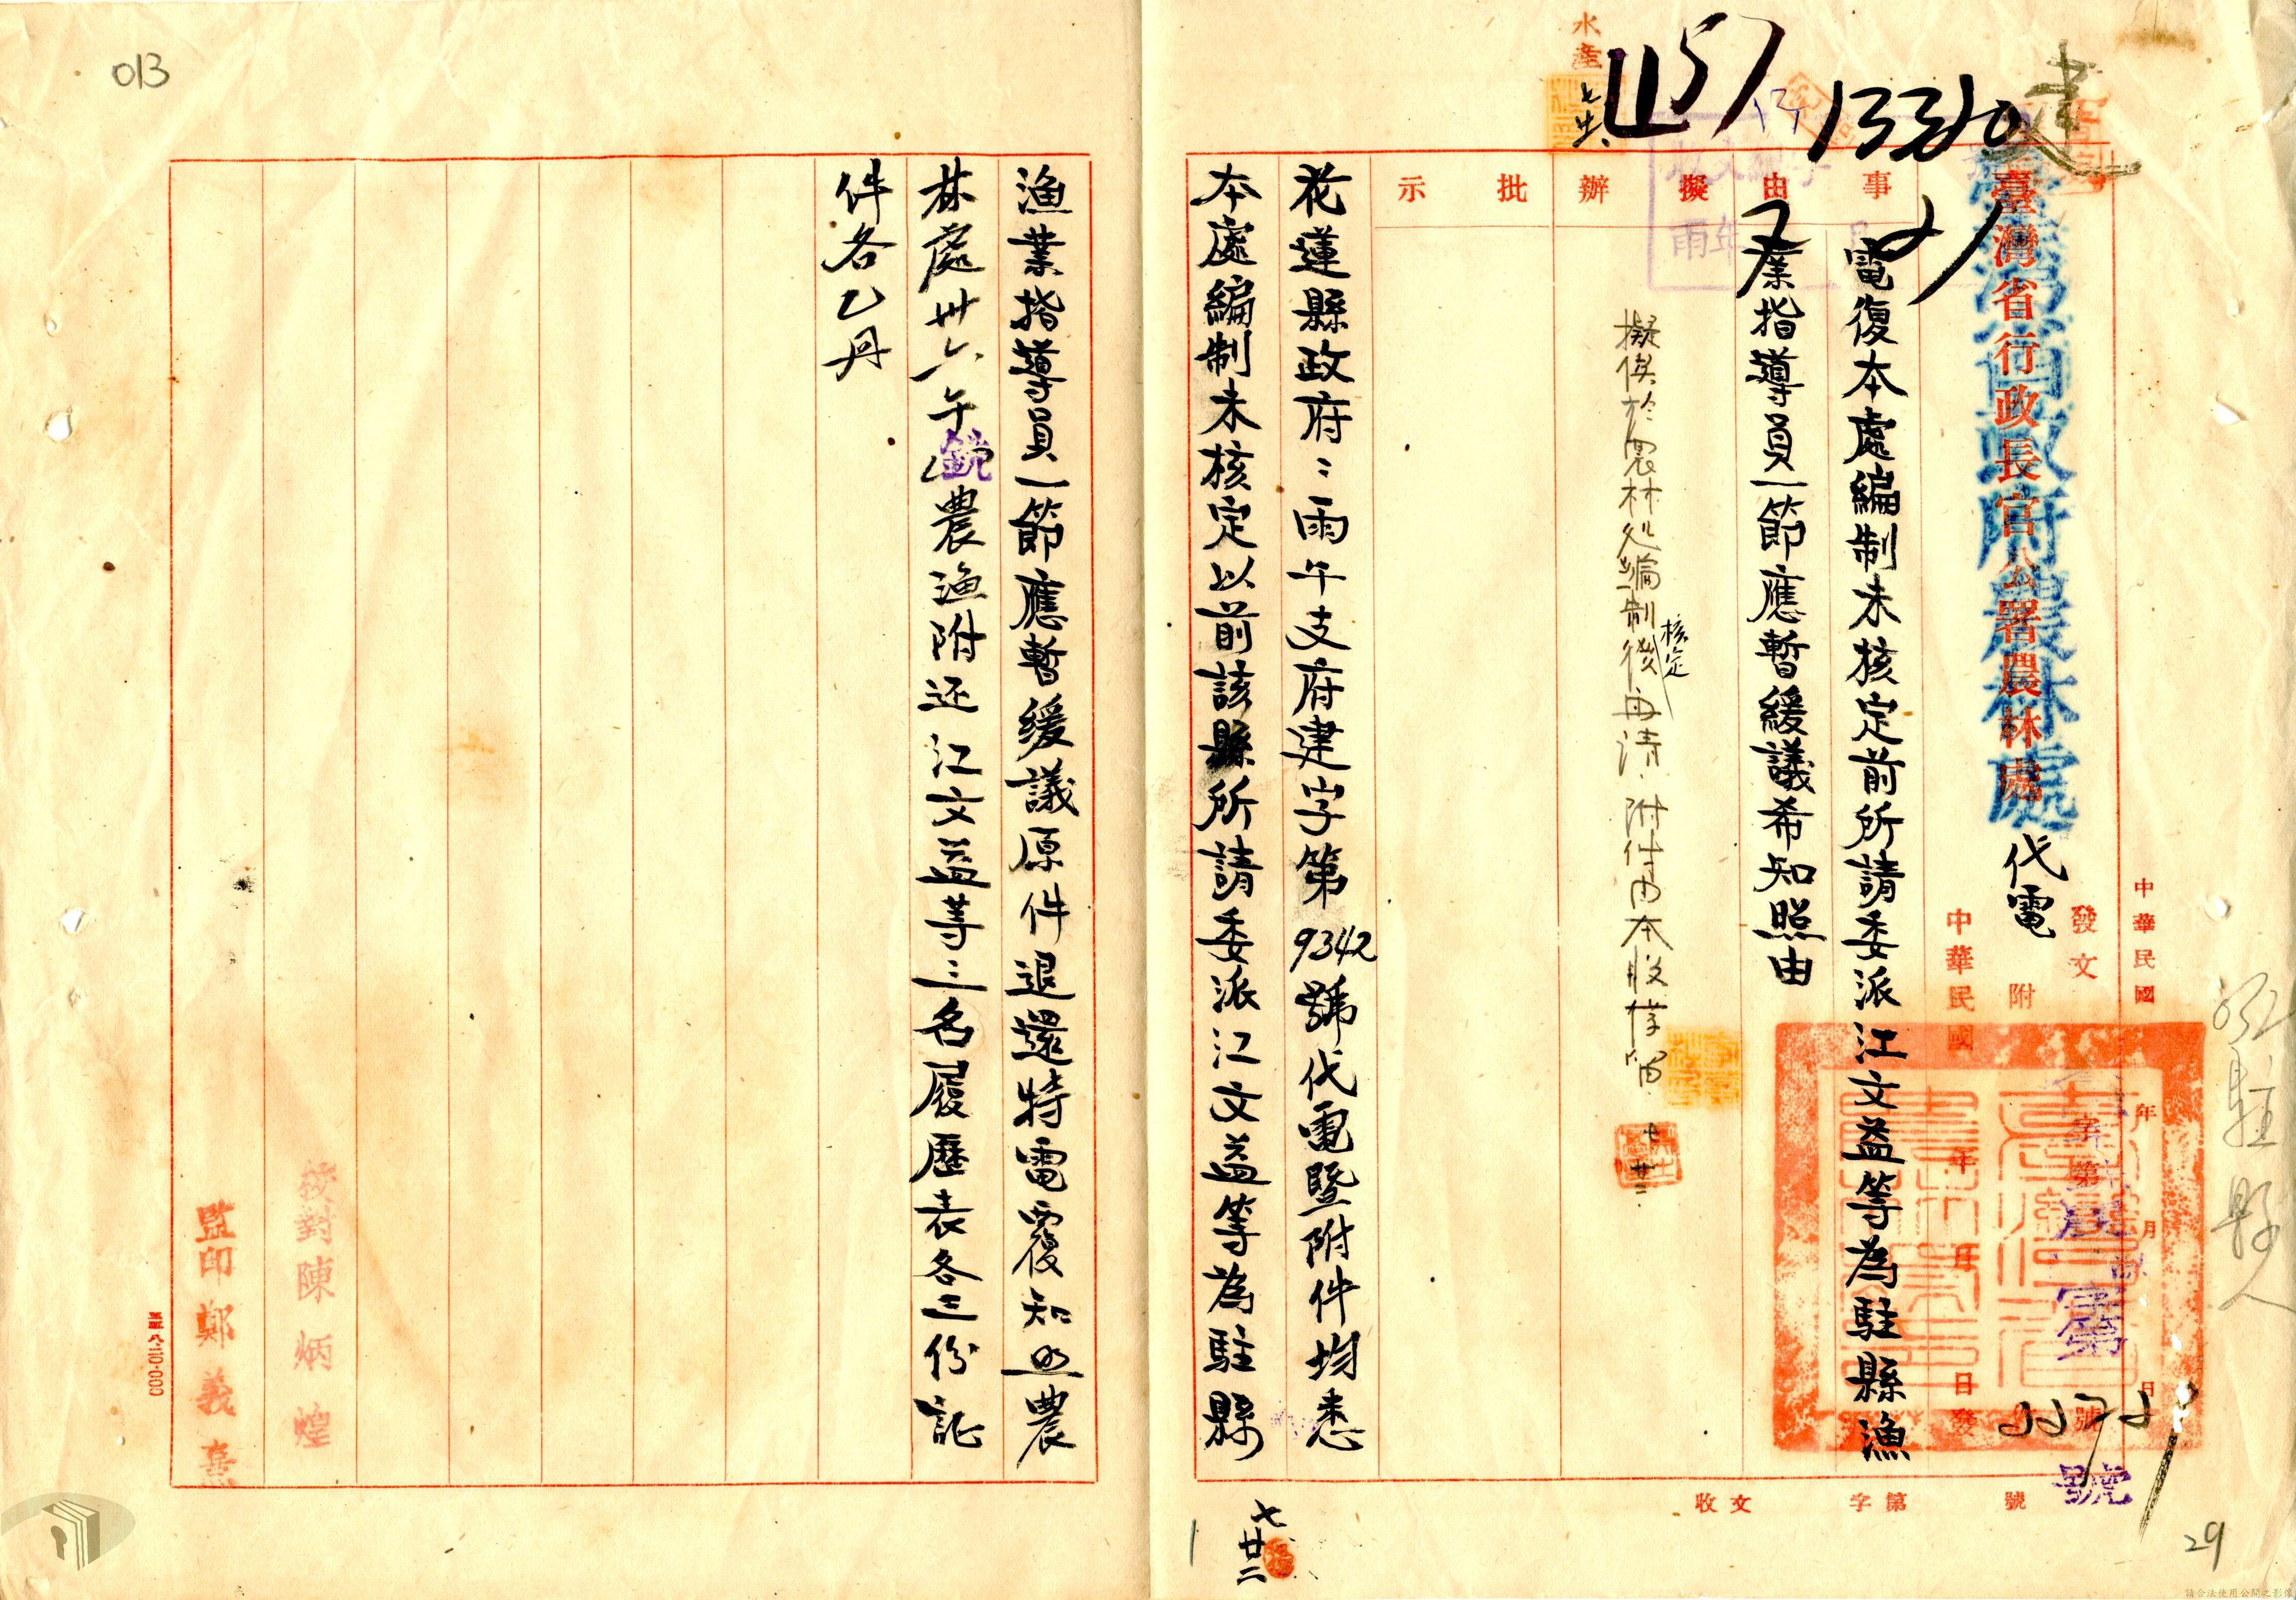 建
13360
水產
臺灣省行政長官公署農林處
臺灣省政府農林處
代電
發文
附
中華民國 年 月 日
中華民國 年 月 日發
字第 號
事由
擬辦
批示
電復本處編制未核定前所請委派江文益等為駐縣漁
業指導員一節應暫緩議希知照由
擬俟於農林處編制核定後再請附件由本股存留
七 廿二
花蓮縣政府:雨午支府建字第9342號代電暨附件均悉
本處編制未核定以前該縣所請委派江文益等為駐縣
漁業指導員一節應暫緩議原件退還特電覆知照農
林處卅六午銑農漁附还江文益等三名履歷表各三份証
件各乙丹
校對陳炳煌
監印鄭義
收文 字第 號
號
七廿二
駐縣人
013
29
請合法使用公開之影像